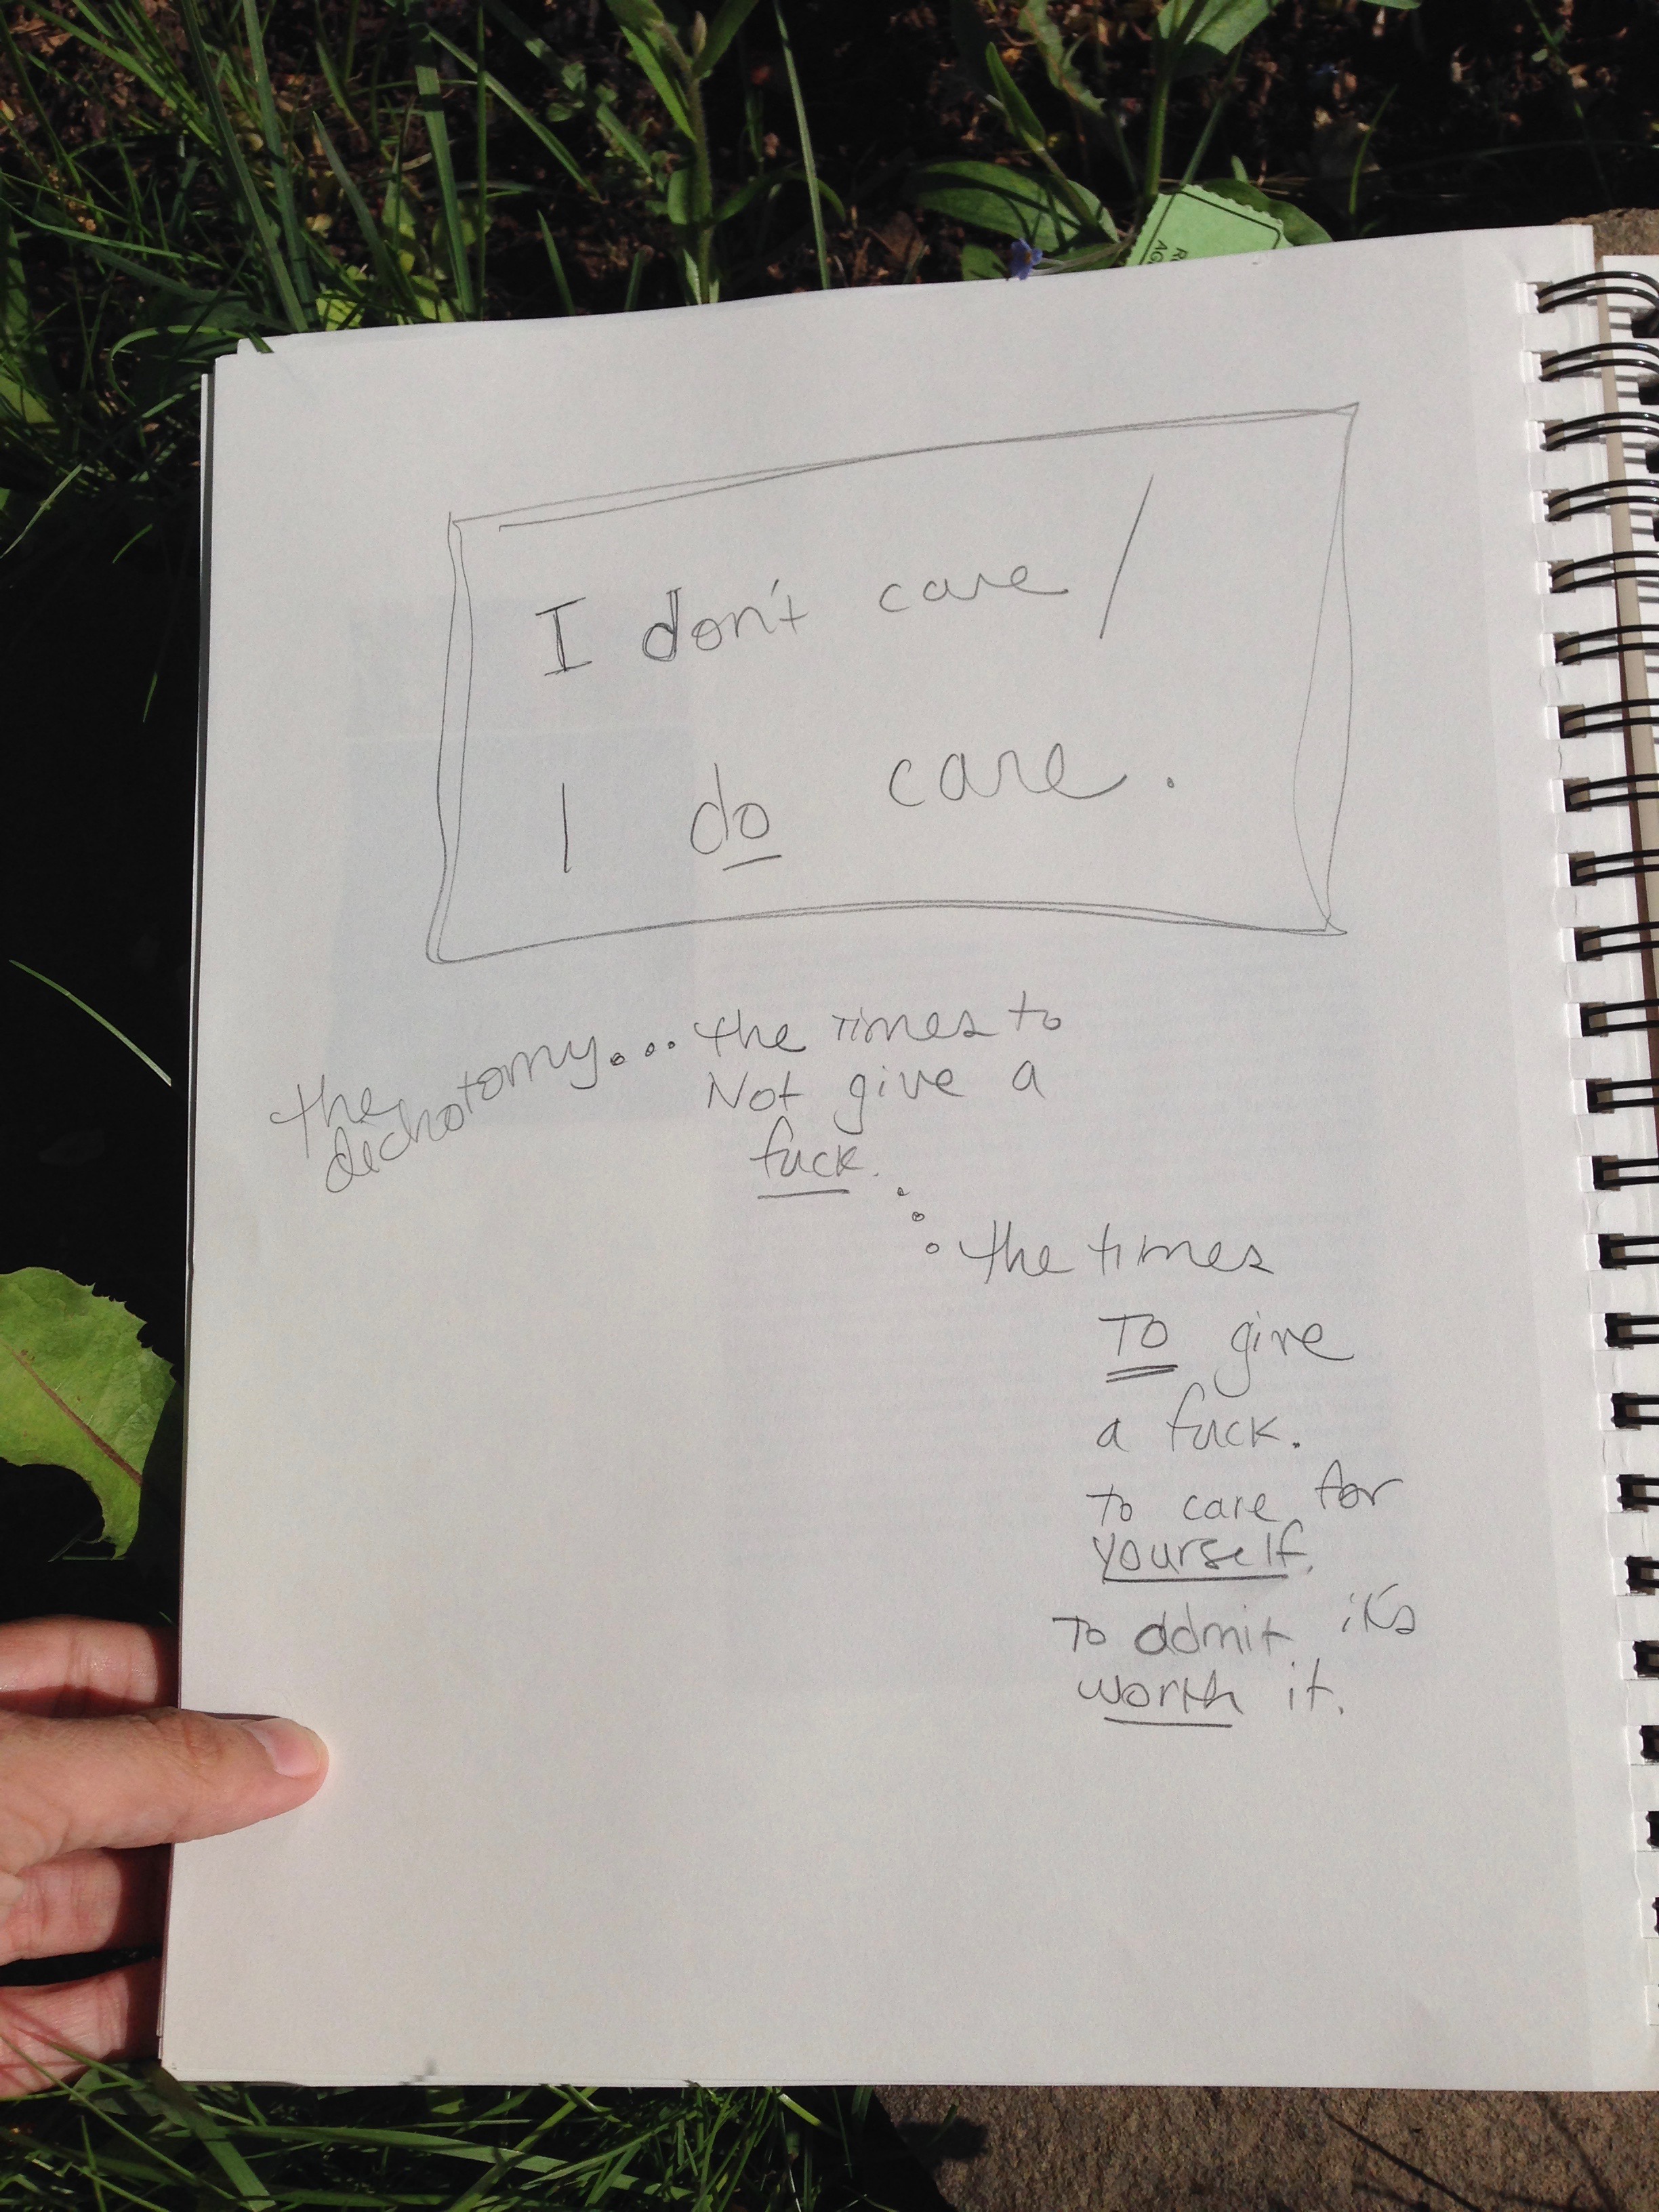 I don't care /
I do care.
the
dichotomy... the times to
Not give a
fuck.
... the times
To give
a fuck.
to care for
yourself.
To admit it's
worth it.